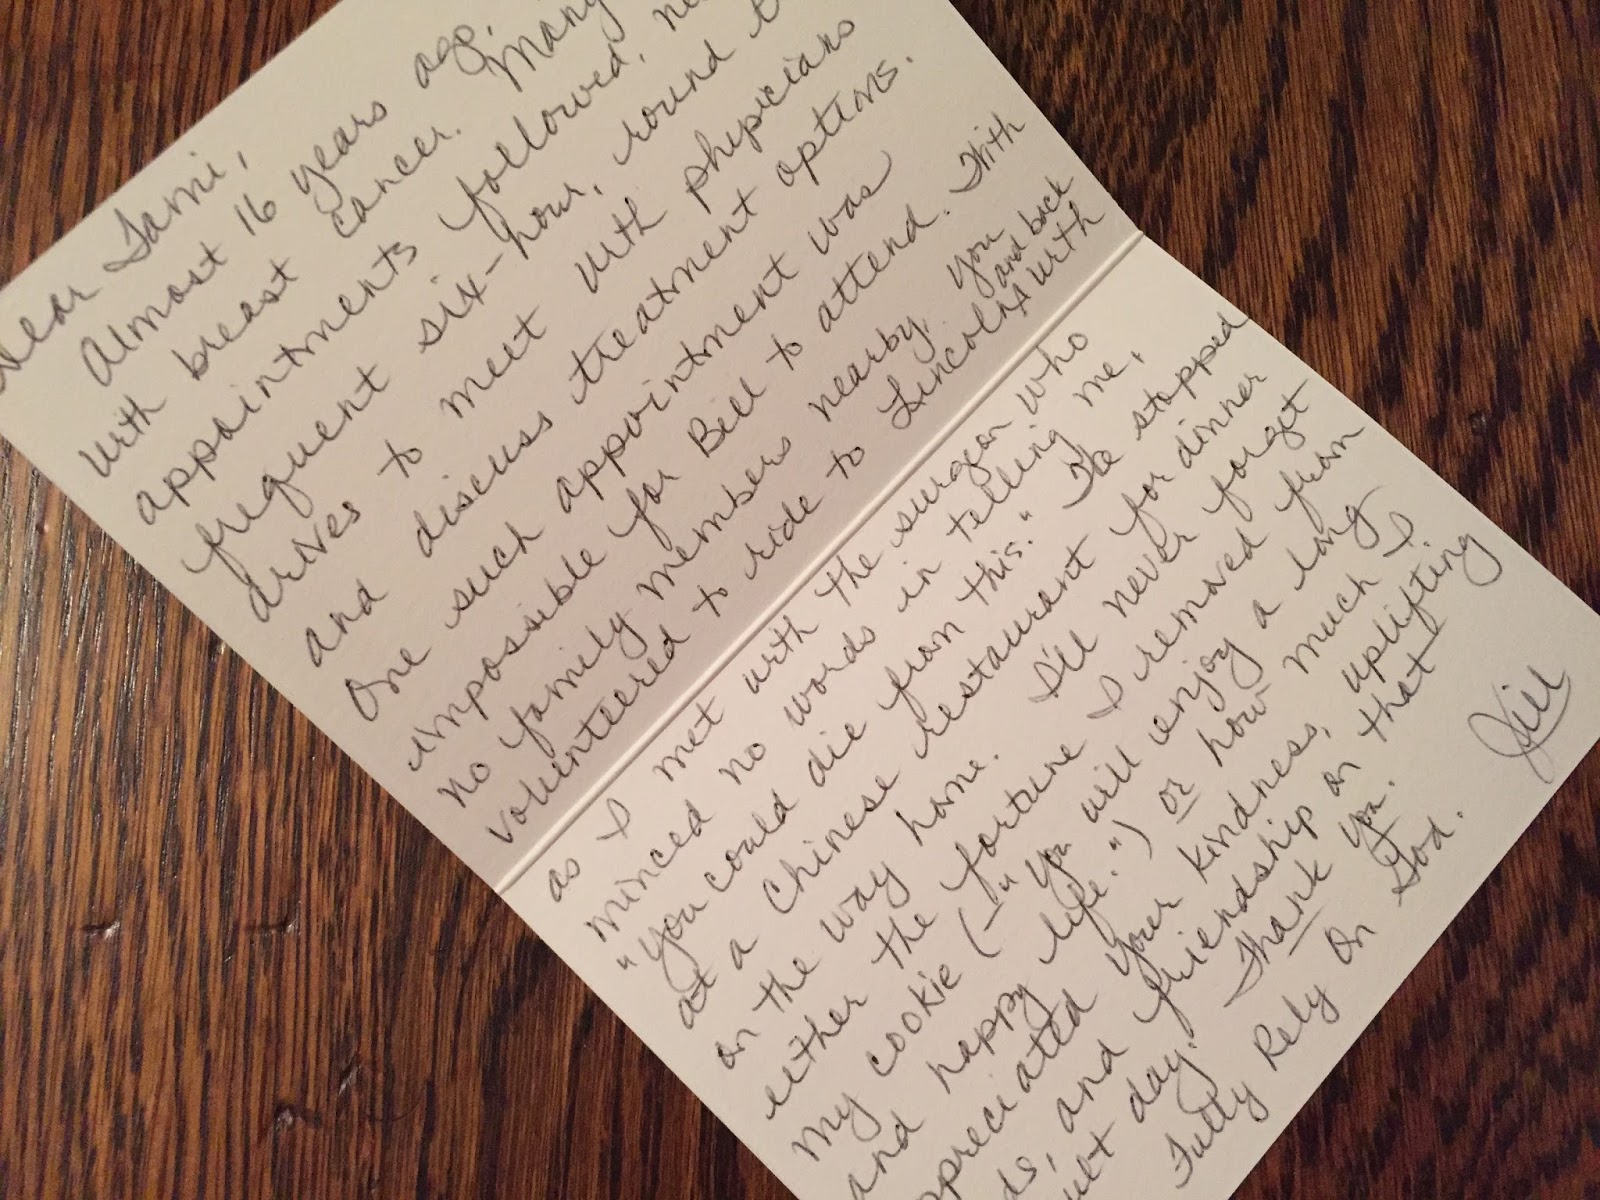 Dear Tami,
Almost 16 years ago,
with breast cancer. Many
appointments followed,
frequent six-hour, round
drives to meet with physicians
and discuss treatment options.
One such appointment was
impossible for Bill to attend. With
no family members nearby, you
volunteered to ride to Lincoln and back with
as I met with the surgeon who
minced no words in telling me,
"You could die from this." We stopped
at a Chinese restaurant for dinner
on the way home. I'll never forget
either the fortune I removed from
my cookie (— "You will enjoy a long
and happy life.") or how much I
appreciated your kindness, uplifting
and friendship on that
day. Thank you.
Fully Rely On God.
Jill